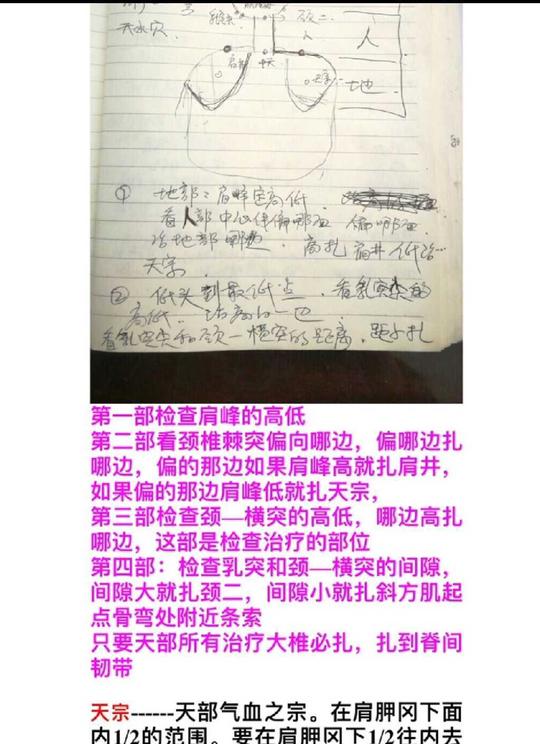 天宗
人
地
① 地部：肩峰定高低
看人部中心伴偏哪面 偏哪面
治地部哪边．高扎肩井 低治
天宗
② 低头到最低点．看乳突尖的
高低．治高的一边
看乳突尖和颈一横突的距离．距小扎
第一部检查肩峰的高低
第二部看颈椎棘突偏向哪边，偏哪边扎
哪边，偏的那边如果肩峰高就扎肩井，
如果偏的那边肩峰低就扎天宗，
第三部检查颈—横突的高低，哪边高扎
哪边，这部是检查治疗的部位
第四部：检查乳突和颈—横突的间隙，
间隙大就扎颈二，间隙小就扎斜方肌起
点骨弯处附近条索
只要天部所有治疗大椎必扎，扎到脊间
韧带
天宗------天部气血之宗。在肩胛冈下面
内1/2的范围。要在肩胛冈下1/2往内去